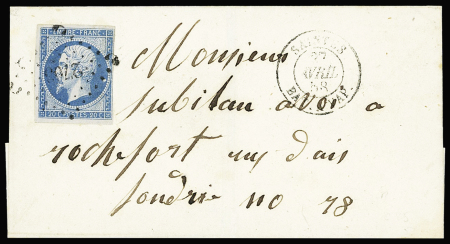 EMPIRE FRANC
20 C POSTES 20 C
SAINTES
27
AVRIL
58
Monsieur
subilau avoué a
rochefort rue dais
fondrie no 78